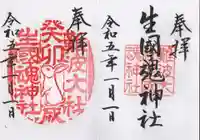 奉拝
生國魂神社
令和五年一月一日
奉拝
癸卯歳
難波大社
生國魂神社
令和五年一月一日